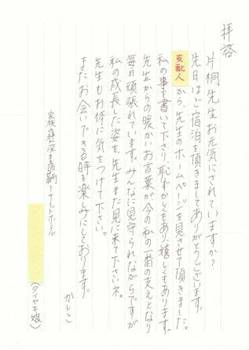 拝啓
片桐先生お元気にされていますか?
先日はご宿泊を頂きましてありがとうございます。
支配人から、先生のホームページを見させて頂きました。
私の事を書いて下さり、恥ずかしくもあり嬉しくもあります。
先生からの暖かいお言葉が、今の私の一番の支えとなり
毎日頑張れています。みんなに見守られながらですが
私の成長した姿を先生また見に来て下さいネ。
先生もお体に気をつけて下さい。
またお会いできる時楽しみにしております。
かしこ